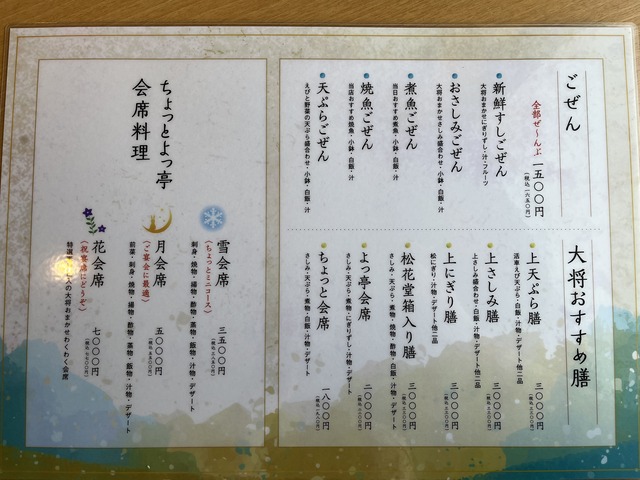 ごぜん
全部ぜ〜んぶ 一五〇〇円
(税込 一六五〇円)
新鮮すしごぜん
大将おまかせにぎりずし・汁・フルーツ
おさしみごぜん
大将おまかせさしみ盛合わせ・小鉢・白飯・汁
煮魚ごぜん
当日おすすめ煮魚・小鉢・白飯・汁
焼魚ごぜん
当店おすすめ焼魚・小鉢・白飯・汁
天ぷらごぜん
えびと野菜の天ぷら盛合わせ・小鉢・白飯・汁
大将おすすめ膳
上天ぷら膳 三〇〇〇円
活車えび天ぷら・白飯・汁物・デザート他二品
(税込 三三〇〇円)
上さしみ膳 三〇〇〇円
上さしみ盛合わせ・白飯・汁物・デザート他二品
(税込 三三〇〇円)
上にぎり膳 三〇〇〇円
松にぎり・汁物・デザート他二品
(税込 三三〇〇円)
松花堂箱入り膳 三〇〇〇円
さしみ・天ぷら・煮物・焼物・酢物・白飯・汁物・デザート
(税込 三三〇〇円)
よっ亭会席 二〇〇〇円
さしみ・天ぷら・煮物・にぎりずし・汁物・デザート
(税込 二二〇〇円)
ちょっと会席 一八〇〇円
さしみ・天ぷら・煮物・白飯・汁物・デザート
(税込 一九八〇円)
ちょっとよっ亭
会席料理
雪会席 三五〇〇円
(ちょっとミニコース)
(税込 三八五〇円)
刺身・焼物・揚物・酢物・蒸物・飯物・汁物・デザート
月会席 五〇〇〇円
(ご宴会に最適)
(税込 五五〇〇円)
前菜・刺身・焼物・揚物・酢物・蒸物・飯物・汁物・デザート
花会席 七〇〇〇円
(祝宴席にどうぞ)
(税込 七七〇〇円)
特選 の大将おまかせわくわく会席